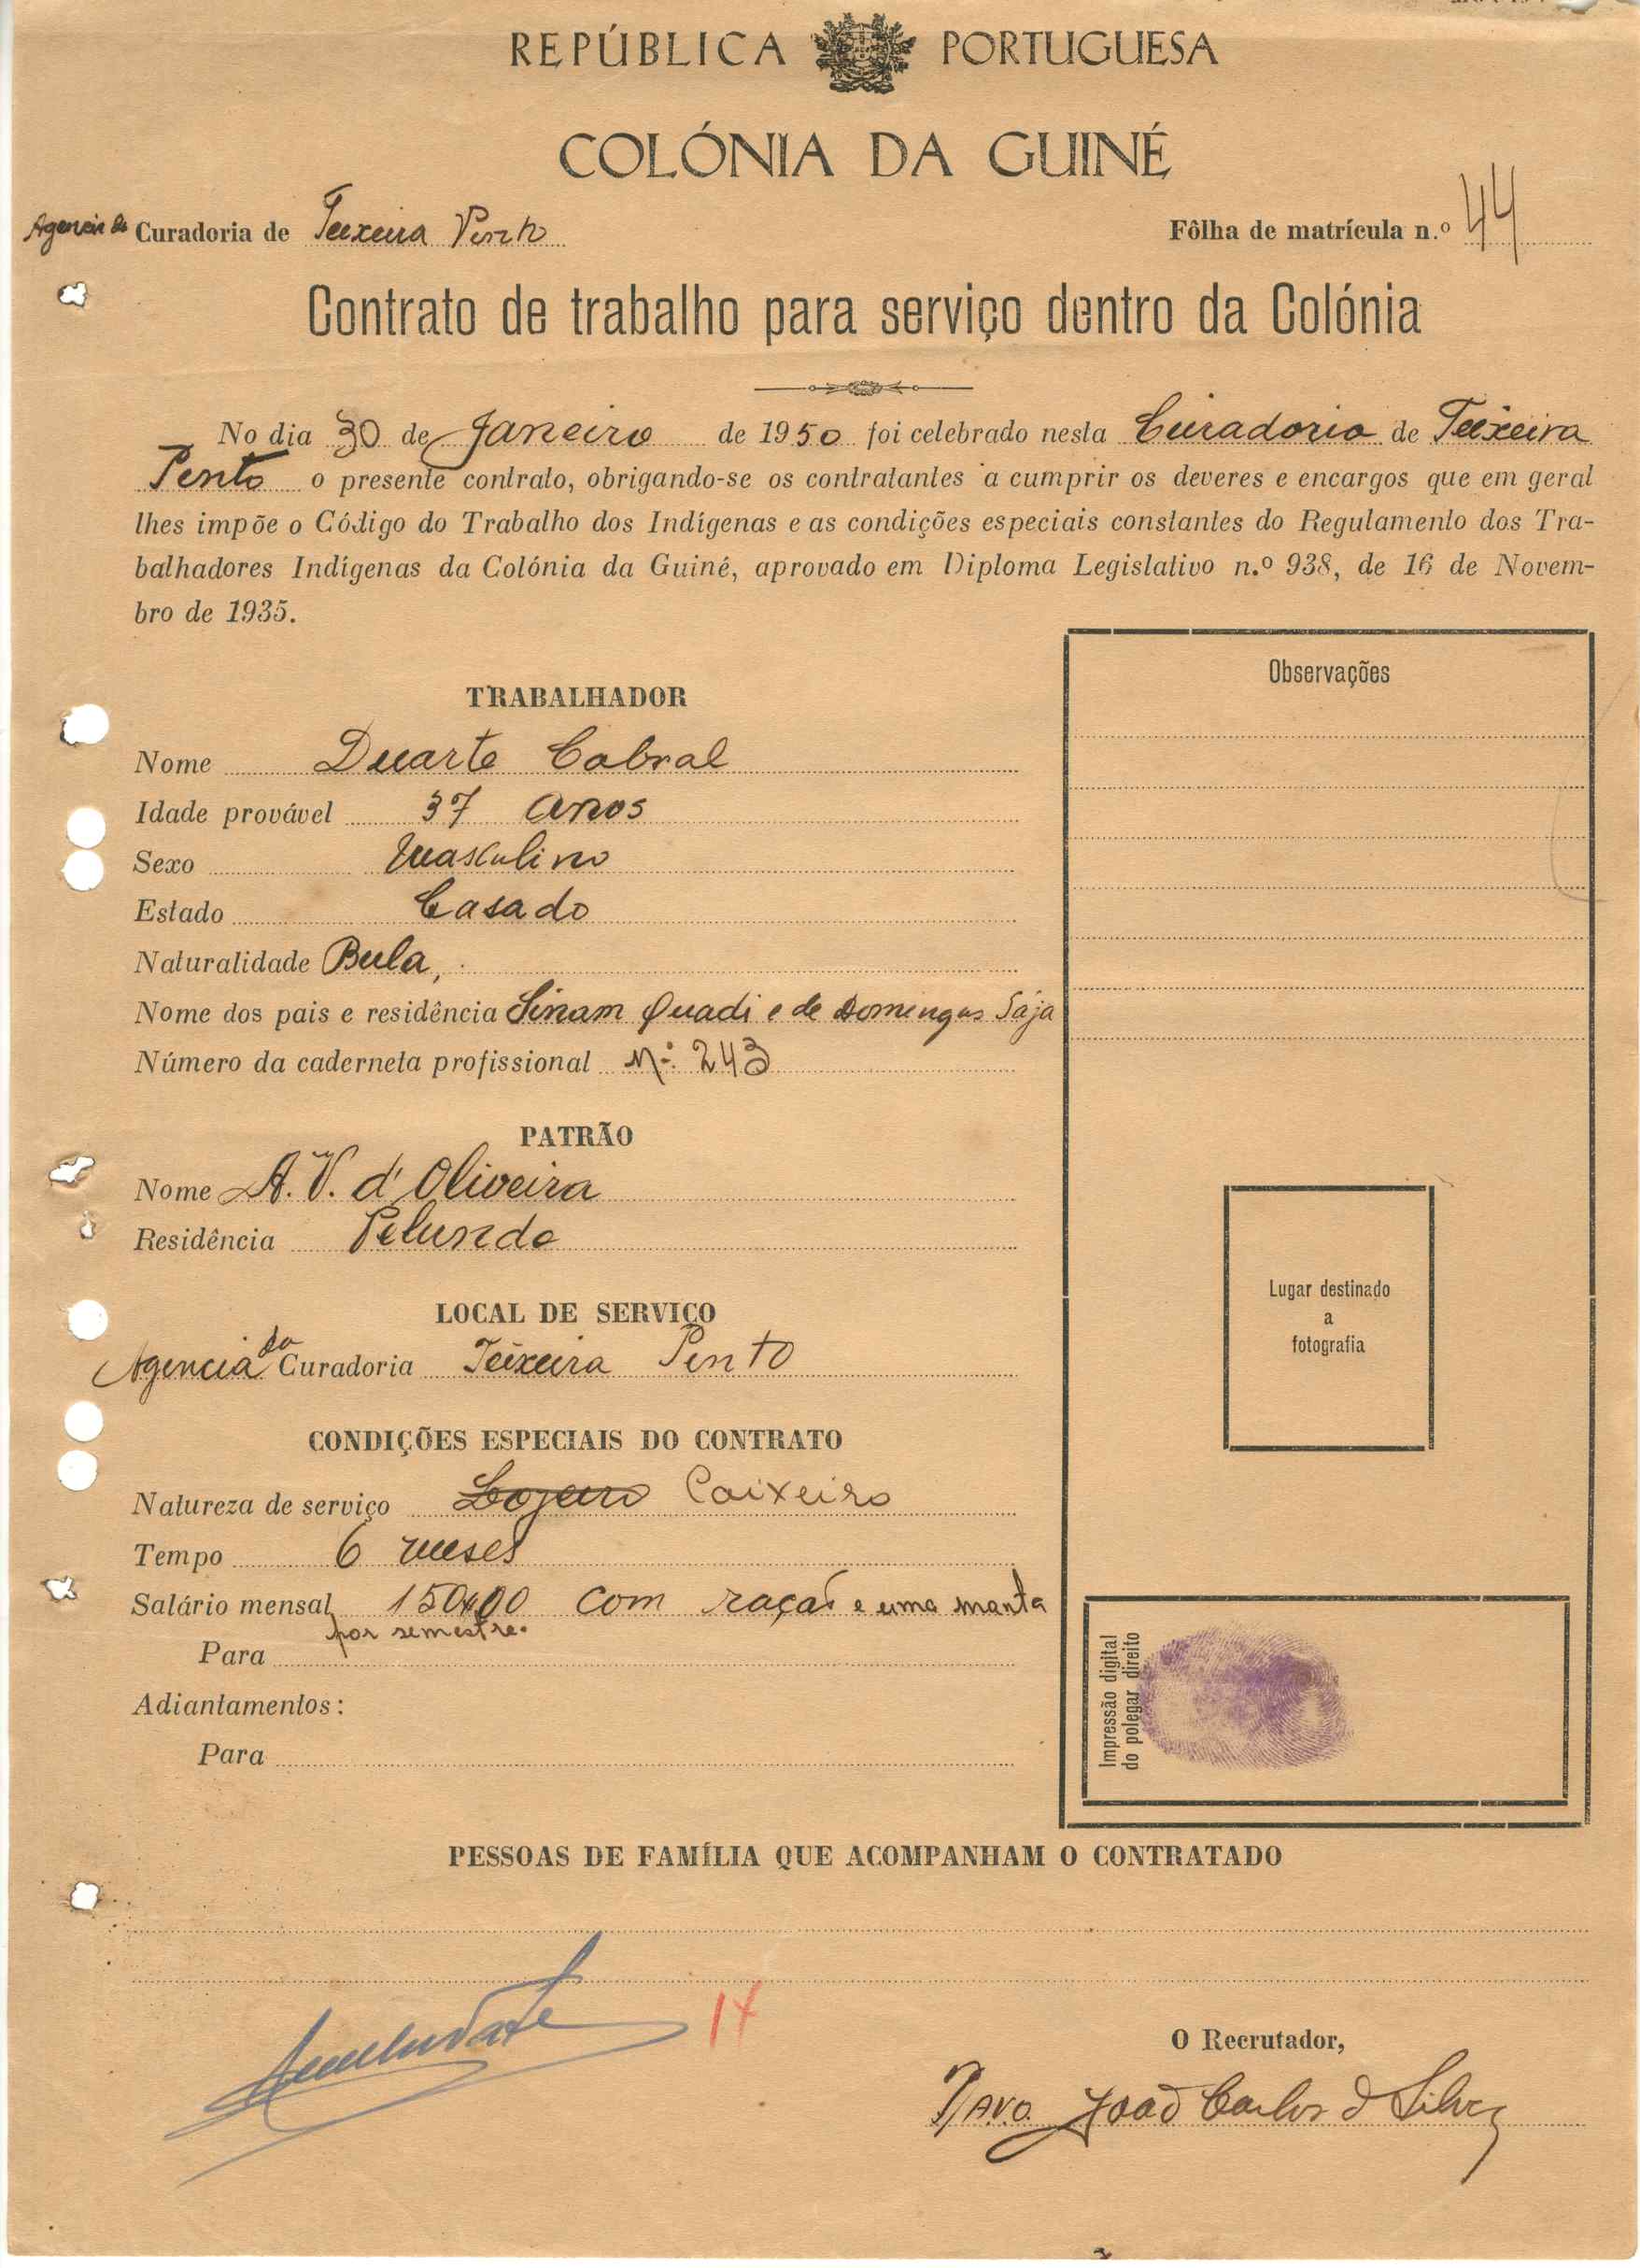 REPÚBLICA PORTUGUESA
COLÓNIA DA GUINÉ
Agencia da Curadoria de Teixeira Pinto Fôlha de matrícula n.º 44
Contrato de trabalho para serviço dentro da Colónia
No dia 30 de Janeiro de 1950 foi celebrado nesta Curadoria de Teixeira
Pinto o presente contrato, obrigando-se os contratantes a cumprir os deveres e encargos que em geral
lhes impõe o Código do Trabalho dos Indígenas e as condições especiais constantes do Regulamento dos Tra-
balhadores Indígenas da Colónia da Guiné, aprovado em Diploma Legislativo n.º 938, de 16 de Novem-
bro de 1935.
Observações
TRABALHADOR
Nome Duarte Cabral
Idade provável 37 anos
Sexo Masculino
Estado Casado
Naturalidade Bula,
Nome dos pais e residência Sinam Quadi e de Domingas Sája
Número da caderneta profissional Nº: 243
PATRÃO
Nome A. V. d'Oliveira
Residência Pelundo
LOCAL DE SERVIÇO
Agencia da Curadoria Teixeira Pinto
Lugar destinado
a
fotografia
CONDIÇÕES ESPECIAIS DO CONTRATO
Natureza de serviço Lojeiro Caixeiro
Tempo 6 meses
Salário mensal 150$00 com raçaõ e uma manta
por semestre.
Para
Adiantamentos:
Para
Impressão digital
do polegar direito
PESSOAS DE FAMÍLIA QUE ACOMPANHAM O CONTRATADO
14
O Recrutador,
João Carlos d Silva